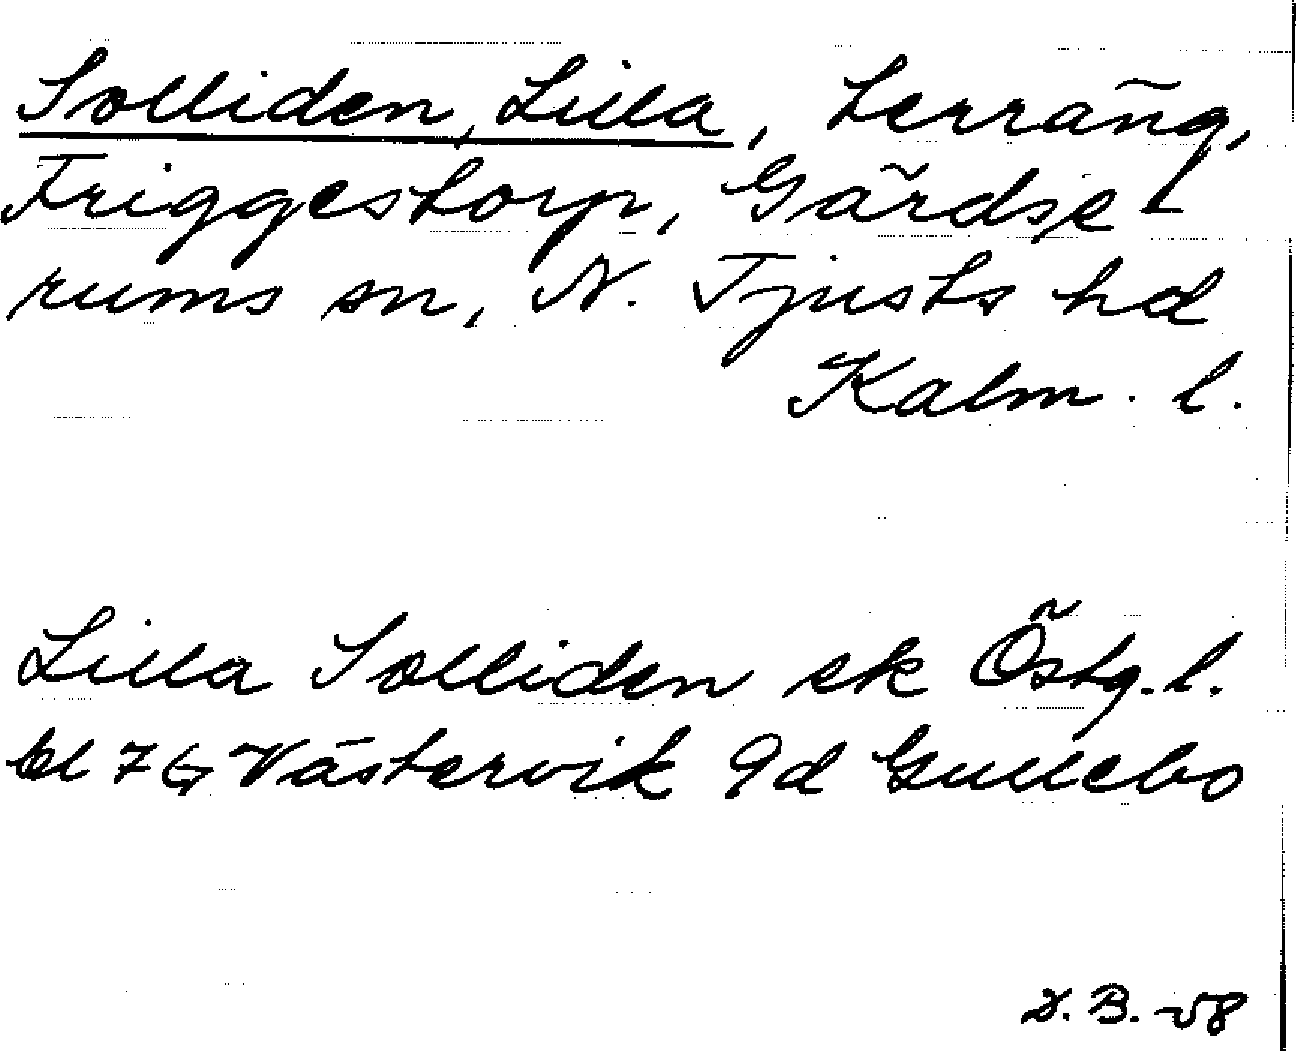 Solliden, Lilla, terräng,
Friggestorp, Gärdse-
rums sn, N. Tjusts hd
Kalm. l.
Lilla Solliden ek Östg. l.
bl 7 G Västervik 9d Gullebo
D. B. -58